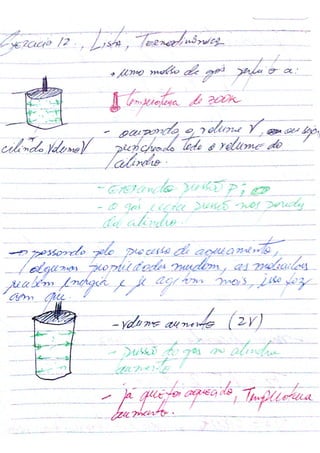 Exercício 12., Lista, Termodinâmica
• uma massa de gás perfeito a:
temperatura de 300K
- ocupando o volume V, ou seja
cilindro Volume V
preenchendo todo o volume do
cilindro.
- exercendo pressão P;
- o gás exerce pressão nas paredes
do cilindro!
passando pelo processo de aquecimento,
algumas propriedades mudam, as moléculas
recebem energia e se agitam mais, isso faz
com que
- volume aumenta (2V)
- pressão do gás no cilindro
aumenta
- já que foi aquecido, Temperatura
aumenta.